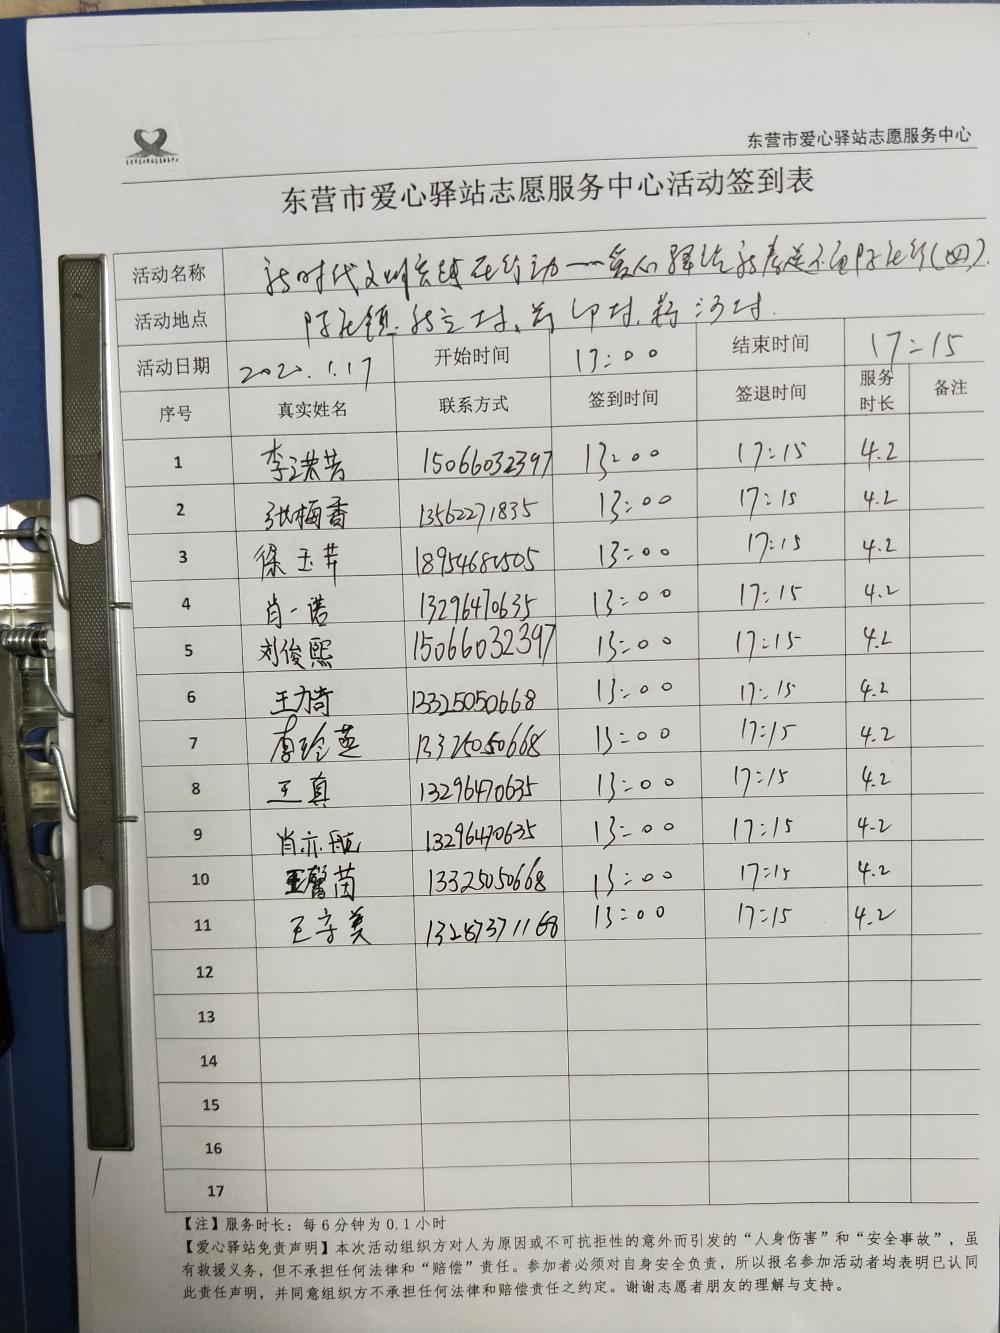 东营市爱心驿站志愿服务中心
东营市爱心驿站志愿服务中心活动签到表
活动名称 新时代文明实践在行动——爱心驿站新春送(四)
活动地点 村、村、村
活动日期 2020.1.17 开始时间 13:00 结束时间 17:15
序号 真实姓名 联系方式 签到时间 签退时间 服务时长 备注
1 李 15066032397 13:00 17:15 4.2
2 张梅香 13562271835 13:00 17:15 4.2
3 徐玉芹 13:00 17:15 4.2
4 肖一诺 13296470635 13:00 17:15 4.2
5 刘俊熙 15066032397 13:00 17:15 4.2
6 王力奇 13325050668 13:00 17:15 4.2
7 李玲燕 13325050668 13:00 17:15 4.2
8 王真 13296470635 13:00 17:15 4.2
9 肖亦航 13296470635 13:00 17:15 4.2
10 王馨茵 13325050668 13:00 17:15 4.2
11 王美 13287371168 13:00 17:15 4.2
12
13
14
15
16
17
【注】服务时长：每6分钟为0.1小时
【爱心驿站免责声明】本次活动组织方对人为原因或不可抗拒性的意外而引发的“人身伤害”和“安全事故”，虽
有救援义务，但不承担任何法律和“赔偿”责任。参加者必须对自身安全负责，所以报名参加活动者均表明已认同
此责任声明，并同意组织方不承担任何法律和赔偿责任之约定。谢谢志愿者朋友的理解与支持。